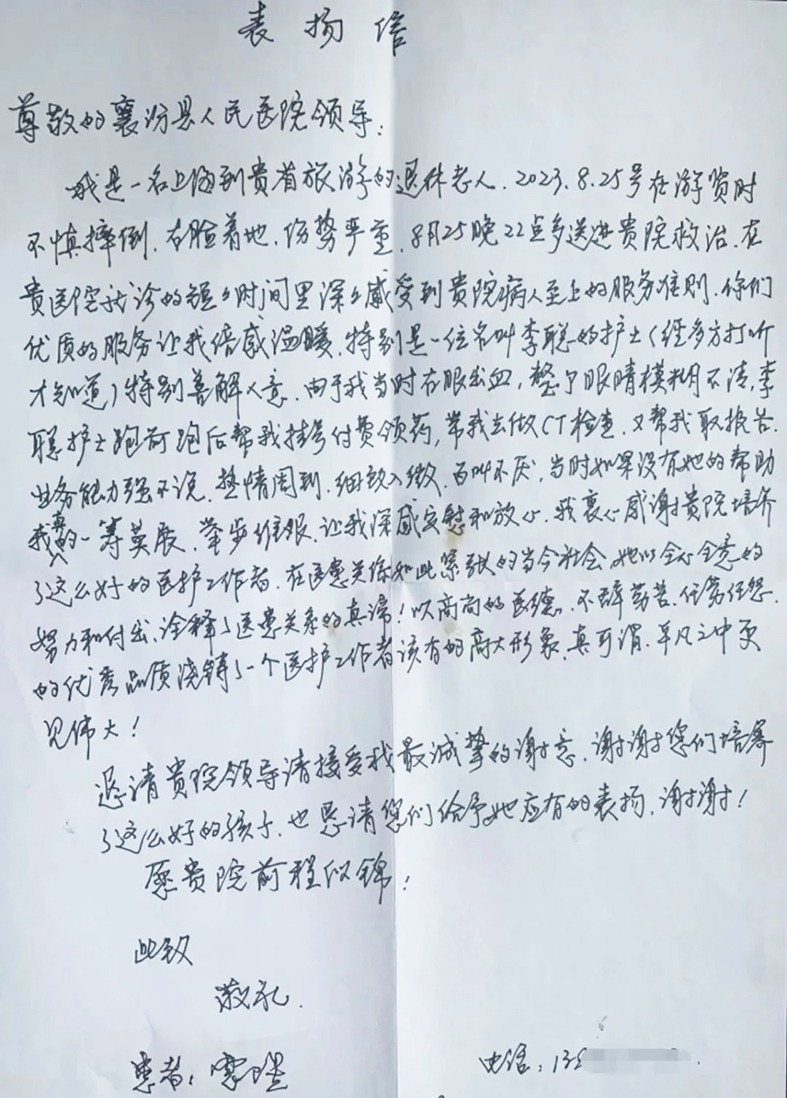 表扬信
尊敬的襄汾县人民医院领导:
我是一名上海到贵省旅游的退休老人. 2023.8.25号在游览时
不慎摔倒. 右脸着地. 伤势严重. 8月25晚22点多送进贵院救治. 在
贵医院就诊的短短时间里深深感受到贵院病人至上的服务准则. 你们
优质的服务让我倍感温暖. 特别是一位名叫李聪的护士(经多方打听
才知道)特别善解人意. 由于我当时右眼出血, 整个眼睛模糊不清, 李
聪护士跑前跑后帮我挂号付费领药, 带我去做CT检查. 又帮我取报告.
业务能力强不说. 热情周到. 细致入微. 百叫不厌. 当时如果没有她的帮助
我真的一筹莫展. 举步维艰. 让我深感安慰和放心. 我衷心感谢贵院培养
了这么好的医护工作者. 在医患关系如此紧张的当今社会. 她以全心全意的
努力和付出. 诠释了医患关系的真谛! 以高尚的医德. 不辞劳苦. 任劳任怨.
的优秀品质浇铸了一个医护工作者该有的高大形象. 真可谓. 平凡之中更
见伟大!
恳请贵院领导请接受我最诚挚的谢意. 谢谢您们培养
了这么好的孩子. 也恳请您们给予她应有的表扬. 谢谢!
愿贵院前程似锦!
此致
敬礼.
患者:
电话: 13